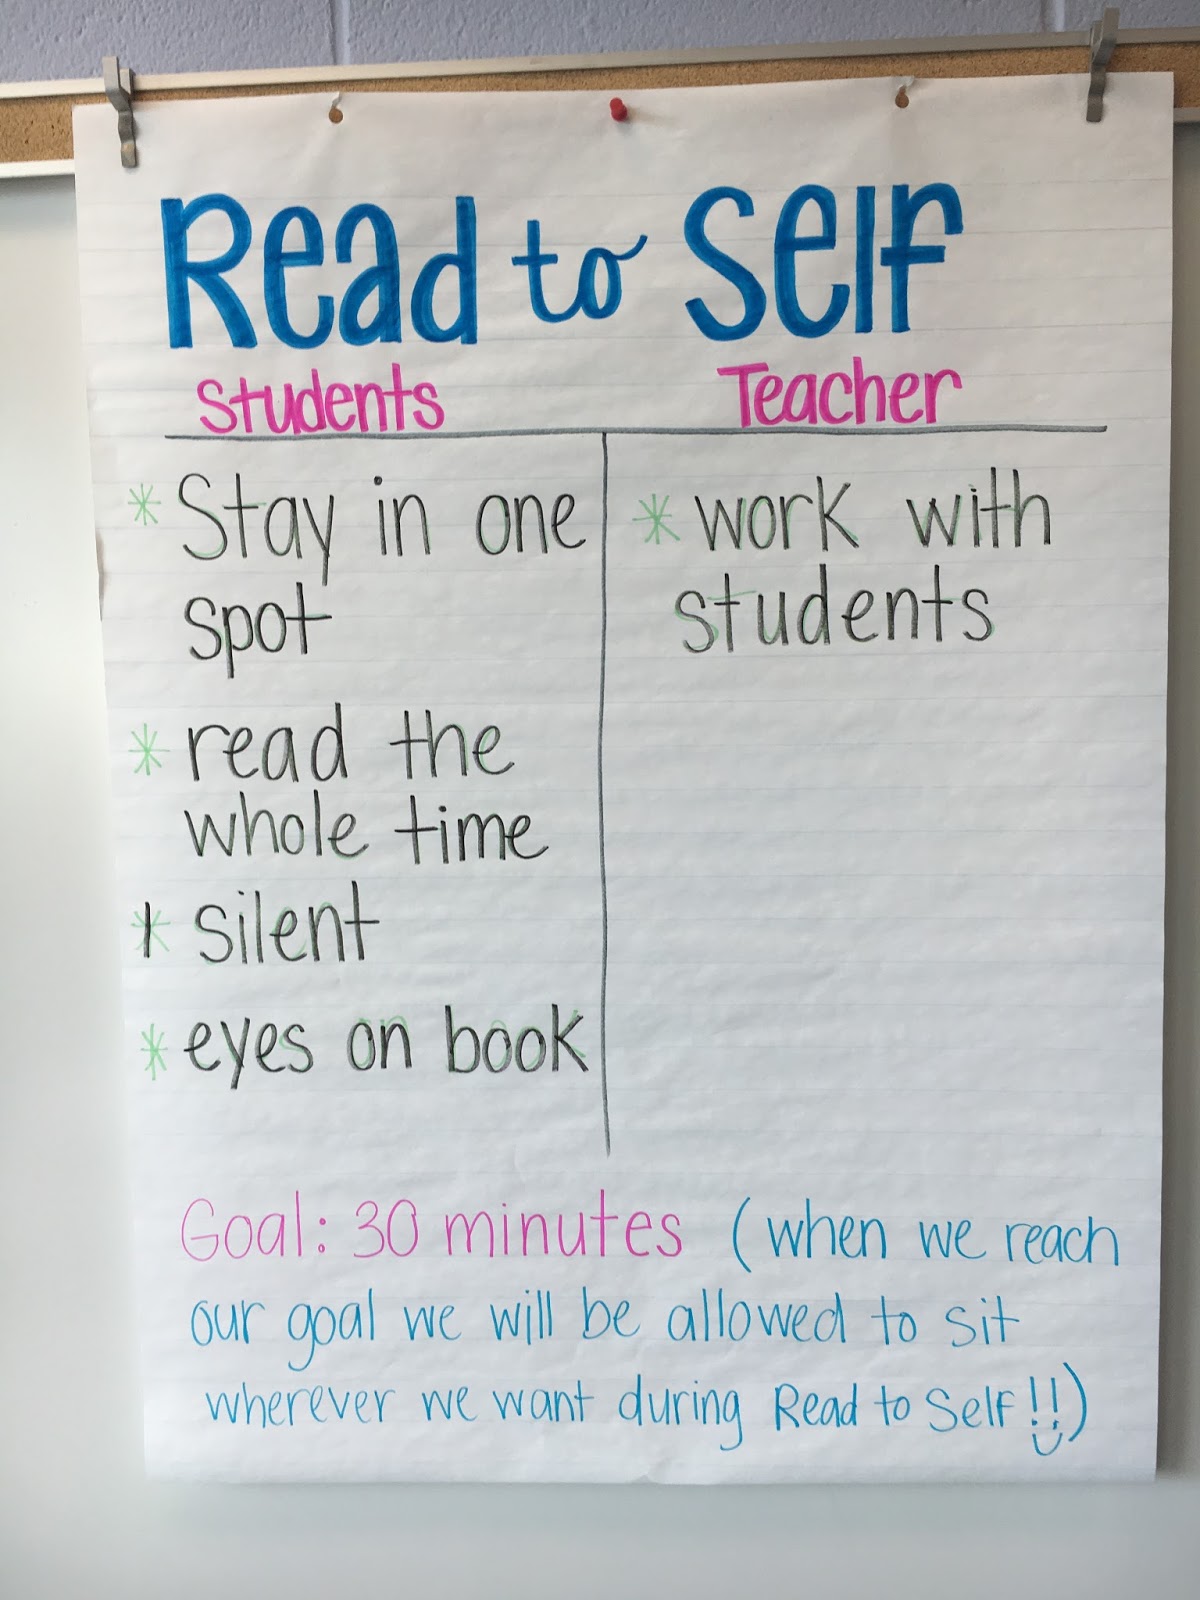 Read to Self
Students
Teacher
* Stay in one
spot
* read the
whole time
* silent
* eyes on book
* work with
students
Goal: 30 minutes (when we reach
our goal we will be allowed to sit
wherever we want during Read to Self!!)